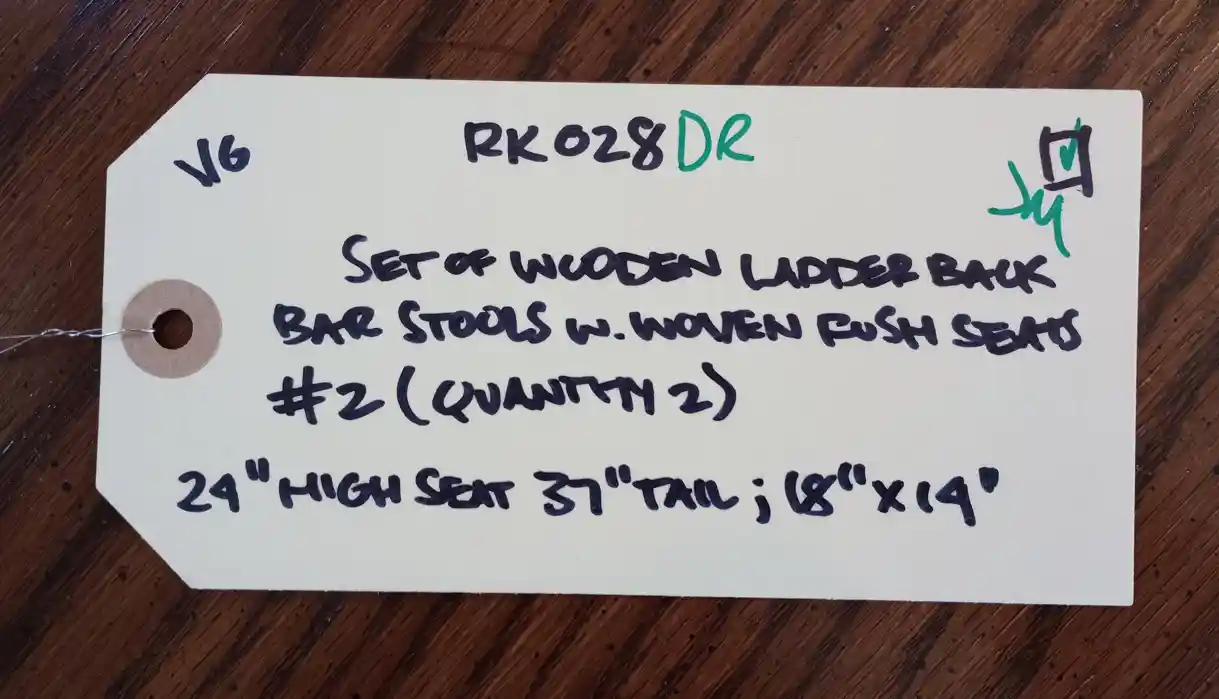 VG
RK028DR
SET OF WOODEN LADDER BACK
BAR STOOLS W. WOVEN RUSH SEATS
#2 (QUANTITY 2)
24" HIGH SEAT 37" TALL; 18" X 14"